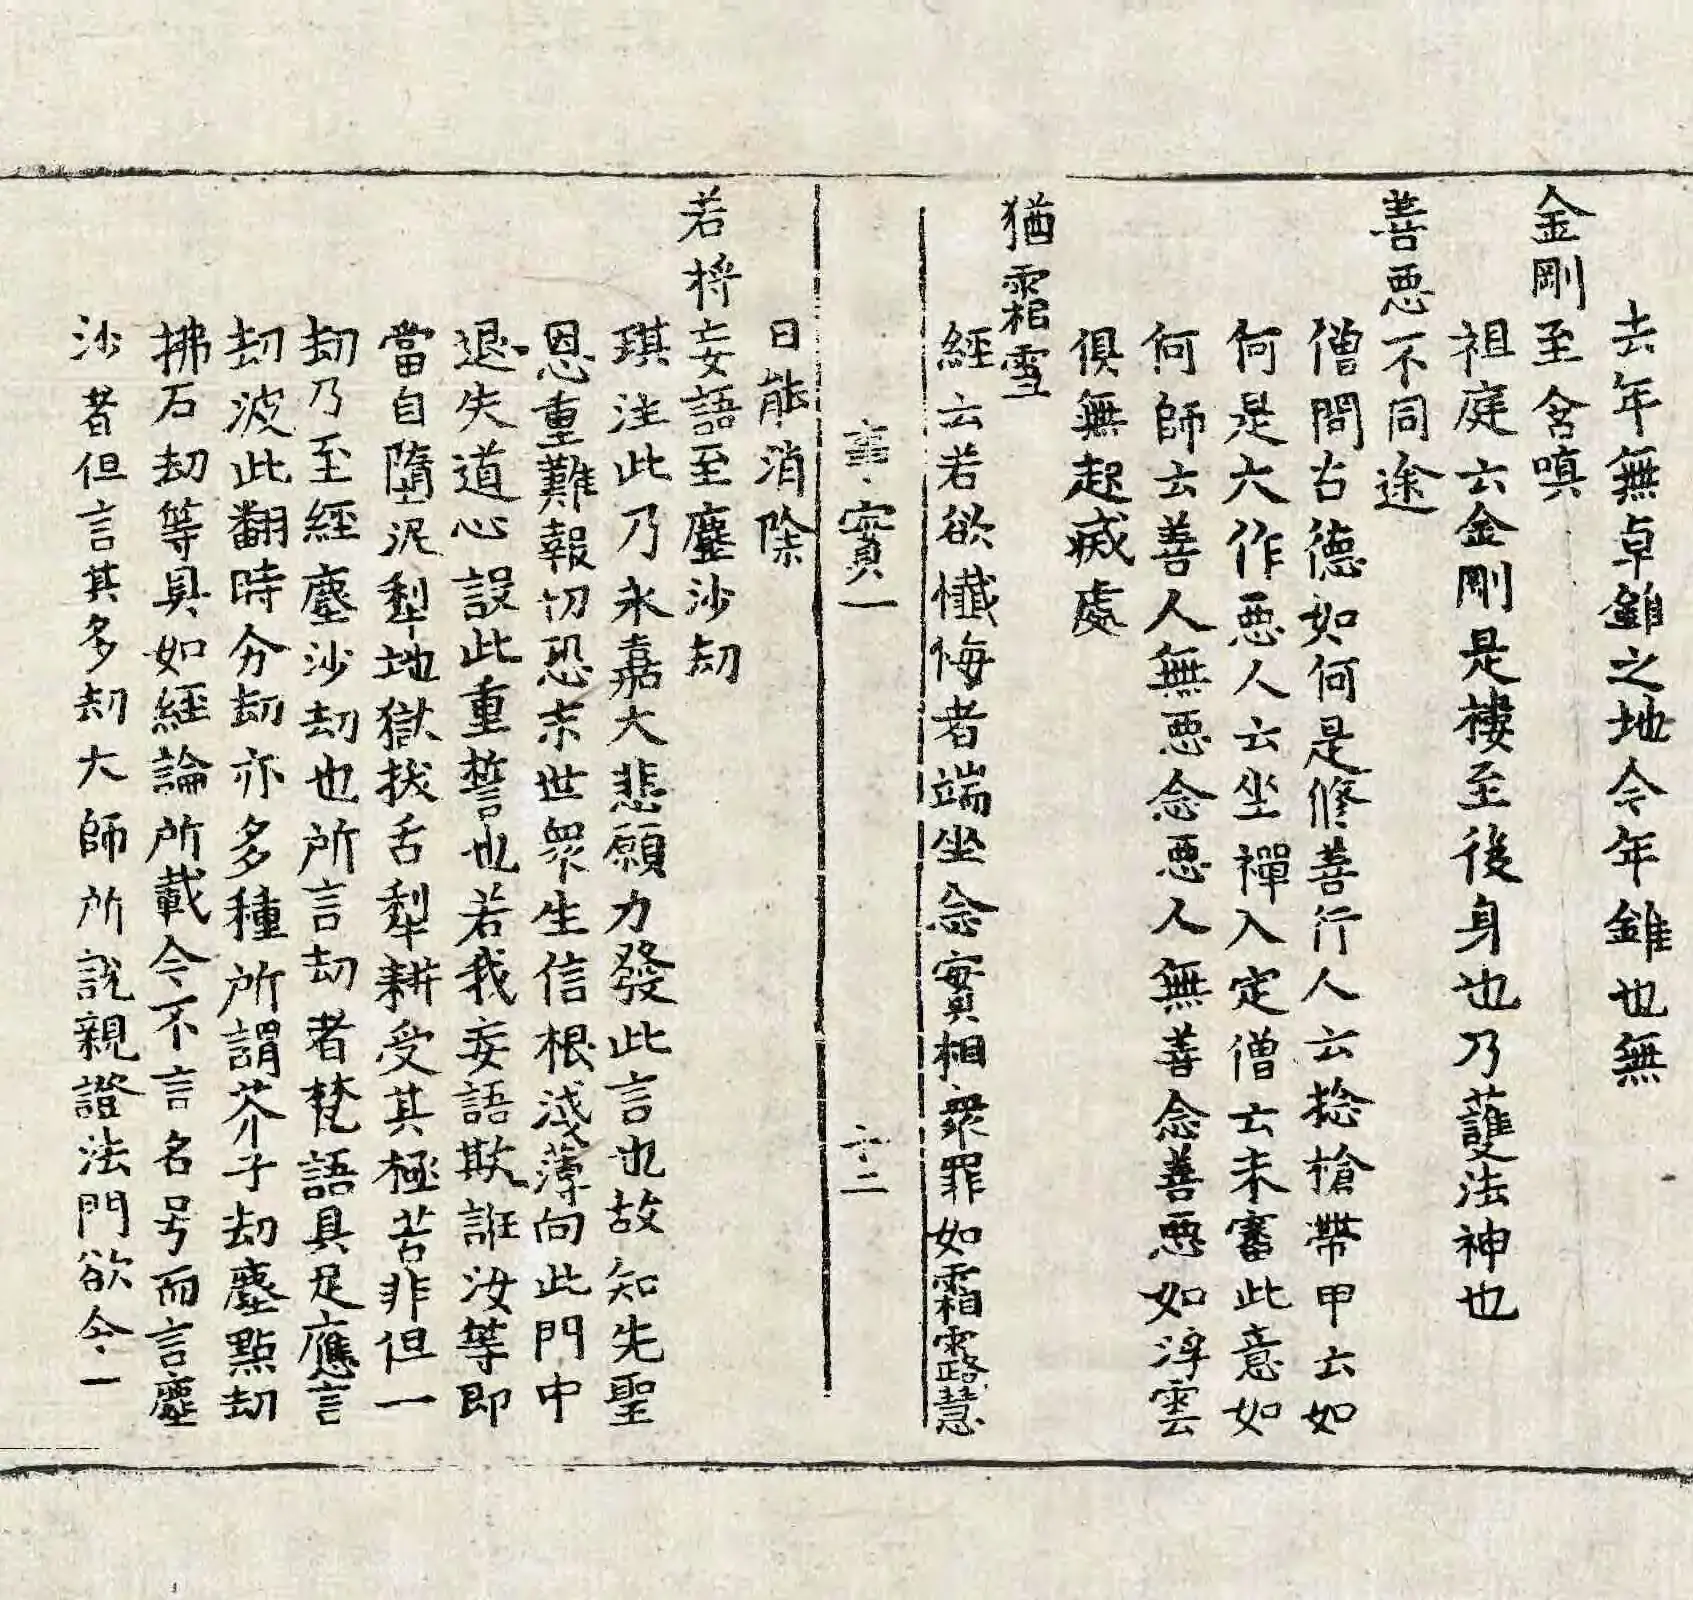 去年無卓錐之地今年錐也無
金剛至含嗔
祖庭云金剛是樓至後身也乃護法神也
善惡不同途
僧問古德如何是修善行人云捻槍帶甲云如
何是大作惡人云坐禪入定僧云未審此意如
何師云善人無惡念惡人無善念善惡如浮雲
俱無起滅處
猶霜雪
經云若欲懺悔者端坐念實相衆罪如霜露慧
事實一
二十二
日能消除
若将妄語至塵沙劫
琪注此乃永嘉大悲願力發此言也故知先聖
恩重難報切恐末世衆生信根淺薄向此門中
退失道心設此重誓也若我妄語欺誑汝等即
當自墮泥犁地獄拔舌犁耕受其極苦非但一
劫乃至經塵沙劫也所言劫者梵語具足應言
劫波此翻時分劫亦多種所謂芥子劫塵點劫
拂石劫等具如經論所載今不言名号而言塵
沙者但言其多劫大師所說親證法門欲令一